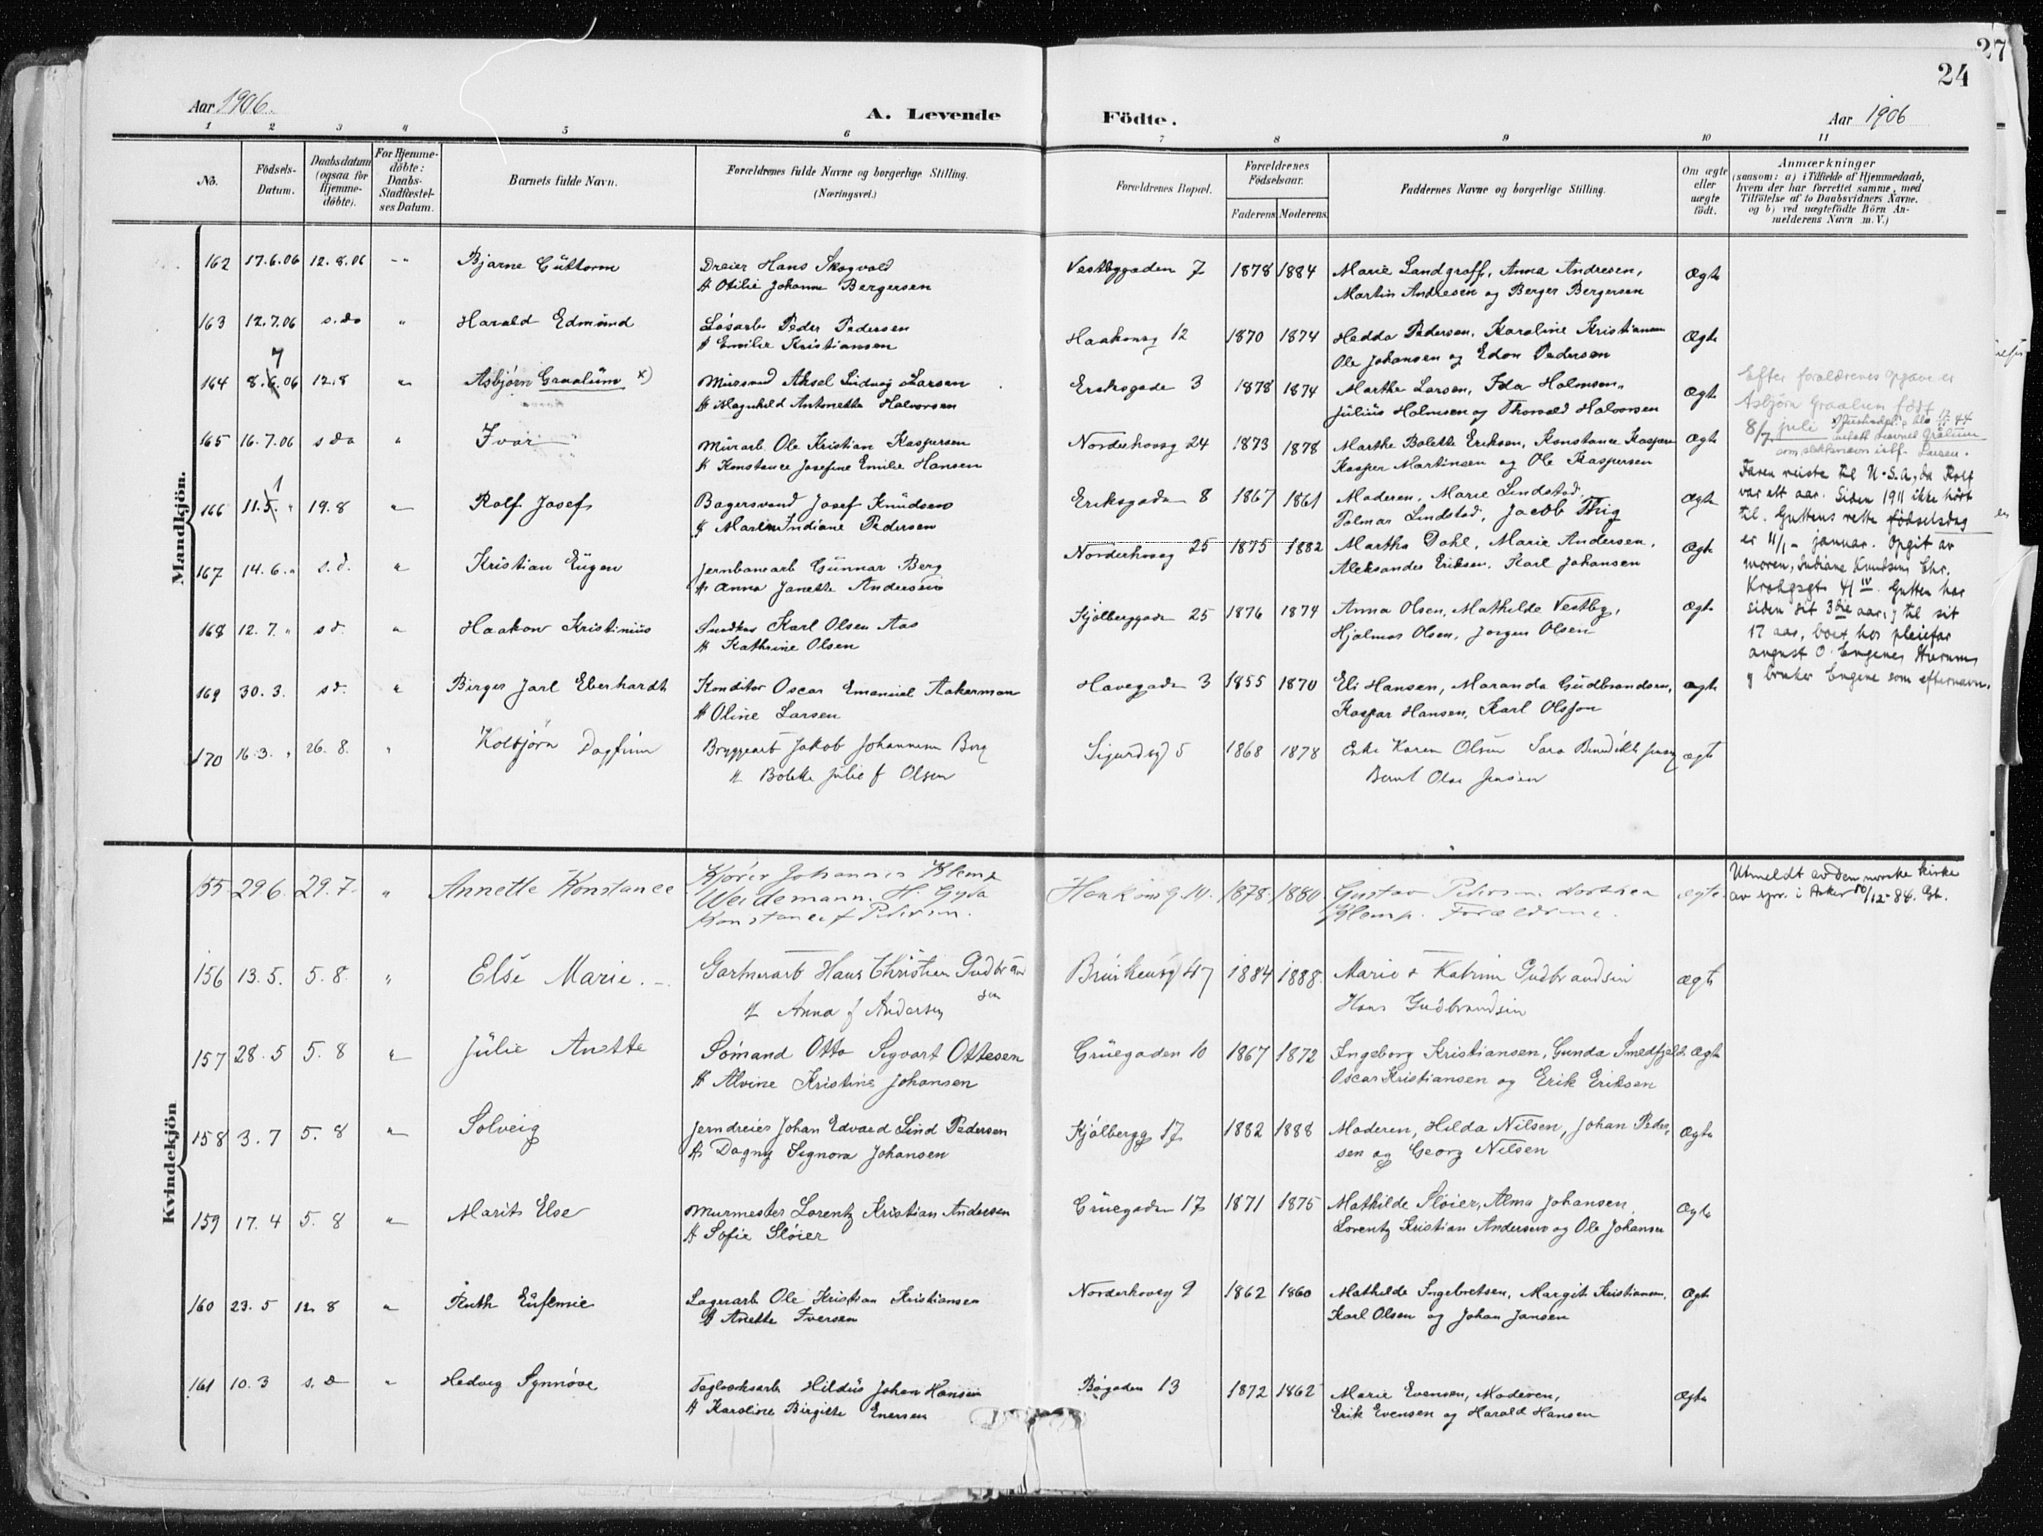 27
24
Aar 1906.
A. Levende Födte.
Aar 1906
1 2 3 4 5 6 7 8 9 10 11
No.
Födsels-Datum.
Daabsdatum (ogsaa for Hjemme-döbte).
For Hjemme-döbte: Daabs-Stadfæstel-ses Datum.
Barnets fulde Navn.
Forældrenes fulde Navne og borgerlige Stilling.
(Næringsvei.)
Forældrenes Bopæl.
Forældrenes Födselsaar.
Faderens Moderens
Faddernes Navne og borgerlige Stilling.
Om ægte eller uægte födt.
Anmærkninger
(saasom: a) i Tilfælde af Hjemmedaab,
hvem der har forrettet samme, med
Tilföielse af to Daabsvidners Navne.
og b) ved uægtefödte Börn An-
melderens Navn m. V.)
Mandkjön.
162 17.6.06 12.8.06 -"- Bjarne Guttorm Dreier Hans Skogvold Vestbygaden 7 1878 1884 Marie Landgraff, Anna Andresen, Ægte
H Otilie Johanne Bergersen Martin Andresen og Berger Bergersen
163 12.7.06 s.do " Harald Edmund Løsarb Peder Pedersen Haakonsg 12 1870 1874 Hedda Pedersen, Karoline Kristiansen Ægte
H Emilie Kristiansen Ole Johansen og Edon Pedersen
7
164 8.6.06 12.8 " Asbjørn Graalum x) Mursvend Aksel Ludvig Larsen Eriksgade 3 1878 1874 Marthe Larsen, Ida Holmsen, Ægte
H Magnhild Antonette Halvorsen Julius Holmsen og Thorvald Halvorsen
Efter forældrenes opgave er
Asbjørn Graalum født
8/7 juli
165 16.7.06 s do " Ivar Murarb Ole Kristian Kaspersen Norderhovsg 24 1873 1878 Marthe Bolette Eriksen, Konstance Kaspersen Ægte
H Konstance Josefine Emilie Hansen Kasper Martinsen og Ole Kaspersen
som slektsnavn istf. Larsen.
1
166 11.5. " 19.8 " Rolf Josef Bagersvend Josef Knudsen Eriksgaden 8 1867 1861 Moderen, Marie Lindstad, Ægte
H Maren Indiane Pedersen Palmar Lindstad, Jacob Thig
Faren reiste til U.S.A, da Rolf
var ett aar. Siden 1911 ikke hørt
til. Guttens rette fødselsdag
er 11/1 - januar. Opgit av
moren, Indiane Knudsen Chr.
Krohgsgt 41 IV. Gutten har
siden sit 3die aar, og til sit
17 aar, boet hos pleiefar
august O. Engene, Hurum,
og bruker Engene som efternavn.
167 14.6. " s.d. " Kristian Eugen Jernbanearb Gunnar Berg Norderhovsg 25 1875 1882 Martha Dahl, Marie Andersen, Ægte
H Anna Janette Andersen Aleksander Eriksen, Karl Johansen
168 12.7. " s d. " Haakon Kristinius Snedker Karl Olsen Aas Kjølberggaden 25 1876 1874 Anna Olsen, Mathilde Vestby, Ægte
H Kathrine Olsen Hjalmar Olsen, Jørgen Olsen
169 30.3. sd. " Birger Jarl Eberhardt Konditor Oscar Emanuel Aakerman Havegaden 3 1855 1870 Eli Hansen, Maranda Gudbrandsen, Ægte
H Oline Larsen Kaspar Hansen, Karl Olsson
170 16.3. " 26.8. " Kolbjørn Dagfinn Bryggearb Jakob Johannesen Berg Sigurdsg 5 1868 1878 Enke Karen Olsen Sara Benedikte Jensen ægte
H Bolette Julie f Olsen Bernt Olse Jensen
Kvindekjön
155 29.6. 29.7. " Annette Konstance Kjører Johannes Klemp Haakonsg 10. 1878. 1880. Gustav Petersen. Dorthea ægte.
Weidemann. H. Gyda Klemp. Forældrene.
Konstance f Petersen.
Utmeldt av den norske kirke
av spr. i Asker 10/12-84. Gt.
156 13.5. 5.8. " Else Marie. Gartnerarb Hans Christian Gudbrand Brinkensg 47 1884 1888. Marie & Katrine Gudbrandsen ægte
sen
H Anna f Andersen Hans Gudbrandsen
157 28.5 5.8 " Julie Anette Sømand Otto Sigvart Ottesen Grüegaden 10 1867 1872 Ingeborg Kristiansen, Gunda Smedfjeld. Ægte
H Alvine Kristine Johansen Oscar Kristiansen og Erik Eriksen
158 3.7 5.8 " Solveig Jerndreier Johan Edvard Lind Pedersen Kjølbergg 17 1882 1888 Moderen, Hilda Nilsen, Johan Peder- Ægte
H Dagny Signora Johansen sen og Georg Nilsen
159 17.4 5.8 " Marits Else Murmester Lorentz Kristian Andersen Grüegaden 17 1871 1875 Mathilde Sløier, Alma Johansen, Ægte
H Sofie Sløier Lorentz Kristian Andersen og Ole Johansen
160 23.5 12.8 " Ruth Eufemie Lagerarb Ole Kristian Kristiansen Norderhovsg 9 1862 1860 Mathilde Ingebretsen, Margit Kristiansen, Ægte
H Anette Iversen Karl Olsen og Johan Jansen
161 10.3 s. D " Hedvig Synnøve Teglverksarb Hildus Johan Hansen Bøgaden 13 1872 1862 Marie Evensen, Moderen, Ægte
H Karoline Birgitte Enersen Erik Evensen og Harald Hansen